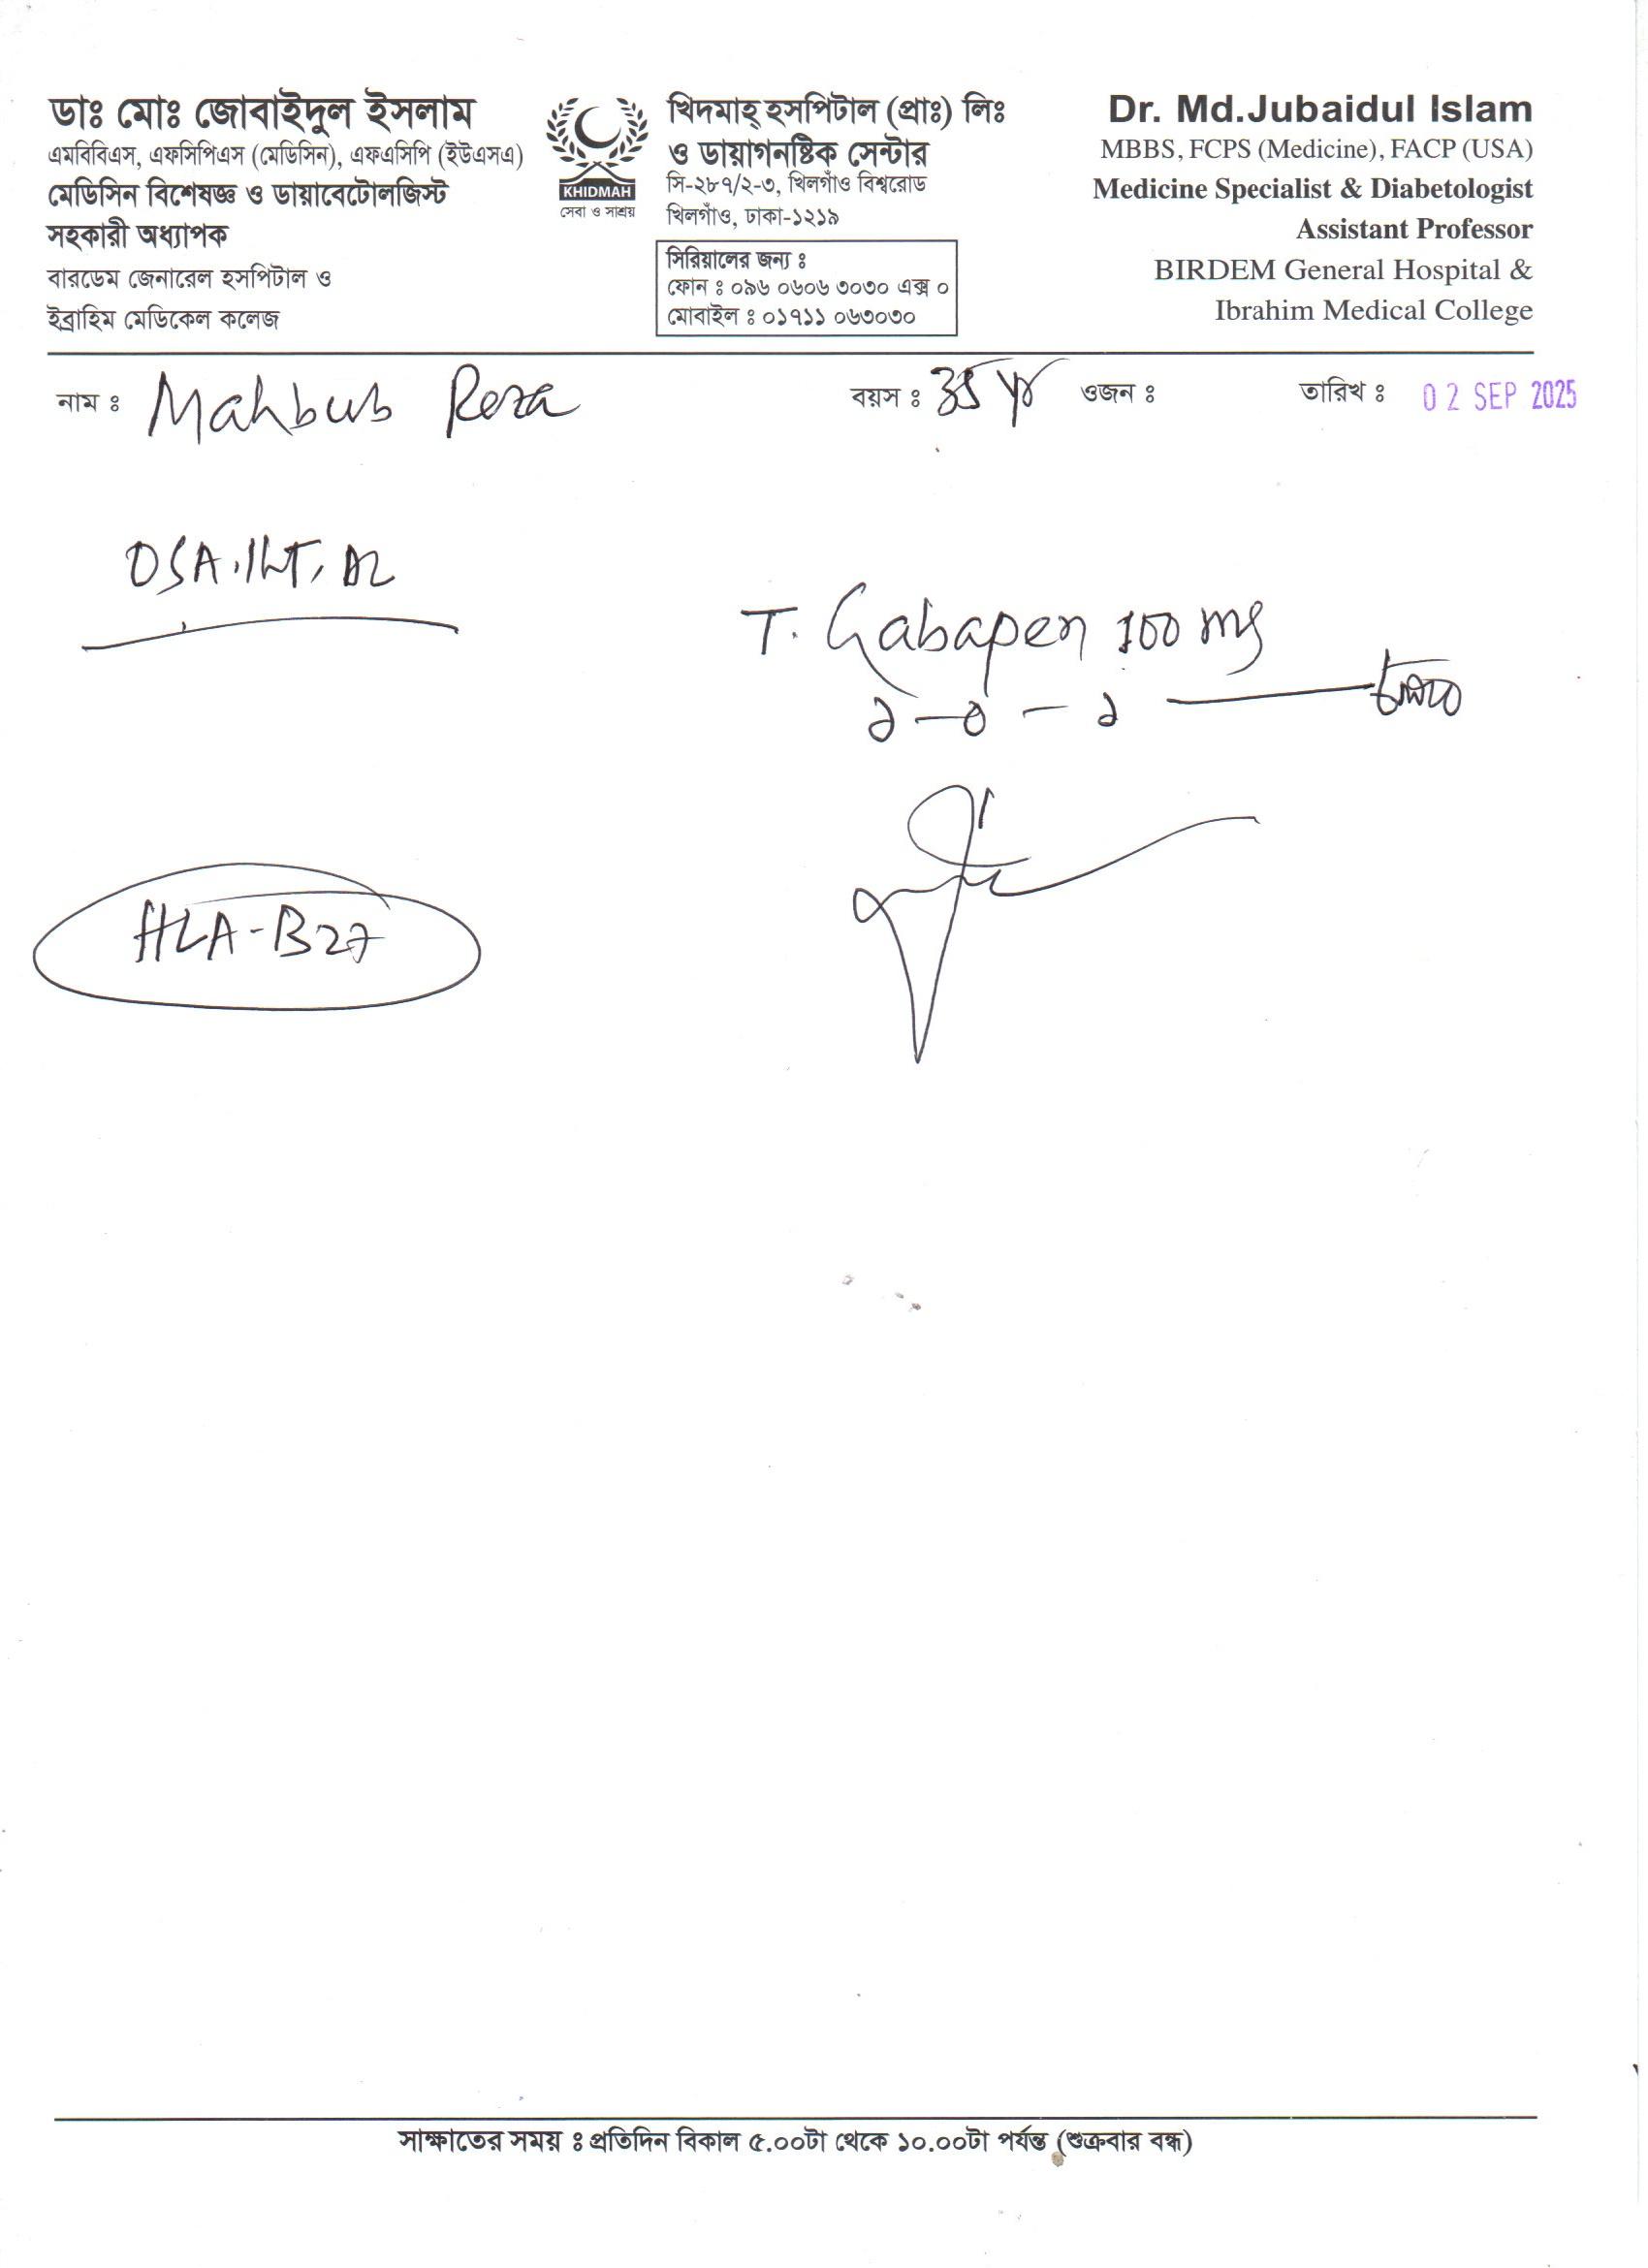 ডাঃ মোঃ জোবাইদুল ইসলাম
এমবিবিএস, এফসিপিএস (মেডিসিন), এফএসিপি (ইউএসএ)
মেডিসিন বিশেষজ্ঞ ও ডায়াবেটোলজিস্ট
সহকারী অধ্যাপক
বারডেম জেনারেল হসপিটাল ও
ইব্রাহিম মেডিকেল কলেজ
KHIDMAH
সেবা ও সাশ্রয়
খিদমাহ্ হসপিটাল (প্রাঃ) লিঃ
ও ডায়াগনষ্টিক সেন্টার
সি-২৮৭/২-৩, খিলগাঁও বিশ্বরোড
খিলগাঁও, ঢাকা-১২১৯
সিরিয়ালের জন্য ঃ
ফোন ঃ ০৯৬ ০৬০৬ ৩০৩০ এক্স ০
মোবাইল ঃ ০১৭১১ ০৬৩০৩০
Dr. Md.Jubaidul Islam
MBBS, FCPS (Medicine), FACP (USA)
Medicine Specialist & Diabetologist
Assistant Professor
BIRDEM General Hospital &
Ibrahim Medical College
নাম ঃ Mahbub Reza বয়স ঃ 35 yr ওজন ঃ তারিখ ঃ 02 SEP 2025
OSA
T. Gabapen 100 mg
১-০-১
HLA-B27
সাক্ষাতের সময় ঃ প্রতিদিন বিকাল ৫.০০টা থেকে ১০.০০টা পর্যন্ত (শুক্রবার বন্ধ)